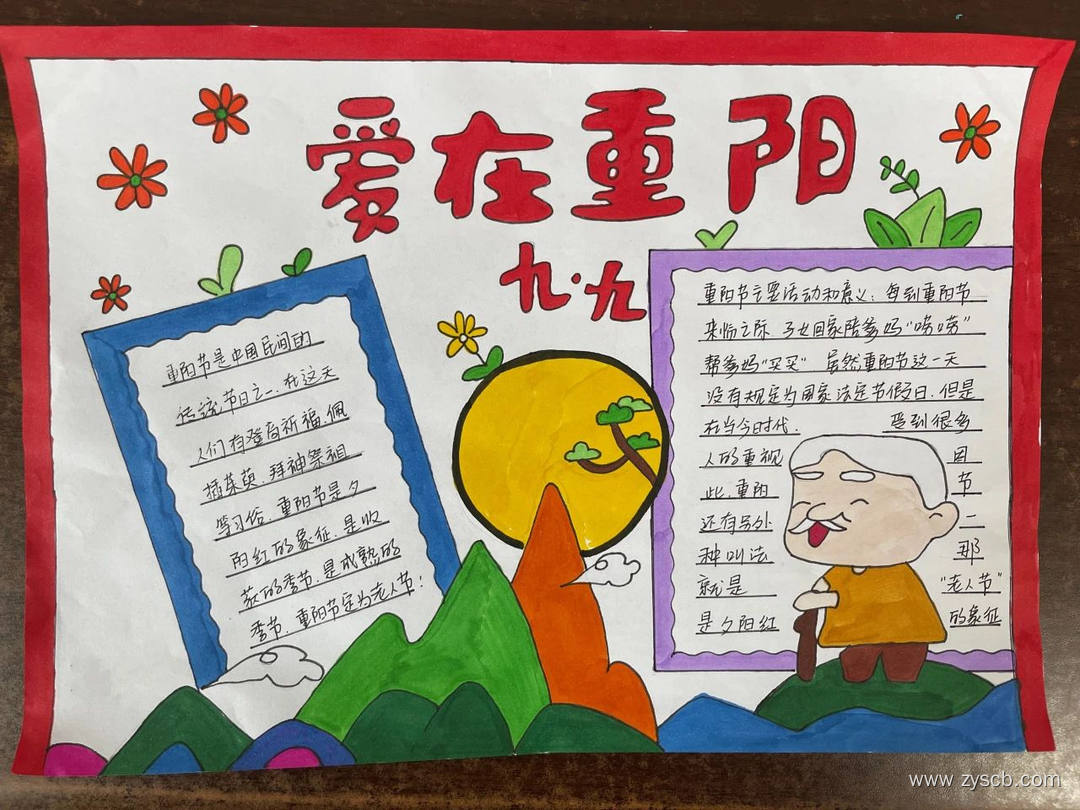 爱在重阳
九·九
重阳节是中国民间的
传统节日之一.在这天
人们有登高祈福.佩
插茱萸.拜神祭祖
等习俗.重阳节是夕
阳红的象征.是收
获的季节.是成熟的
季节.重阳节定为老人节!
重阳节主要活动和意义:每到重阳节
来临之际 子女回家陪爹妈"唠唠"
帮爹妈"买买" 虽然重阳节这一天
没有规定为国家法定节假日.但是
在当今时代. 受到很多
人的重视 因
此.重阳 节
还有另外 二
种叫法 那
就是 "老人节"
是夕阳红 的象征
www.zyscb.com